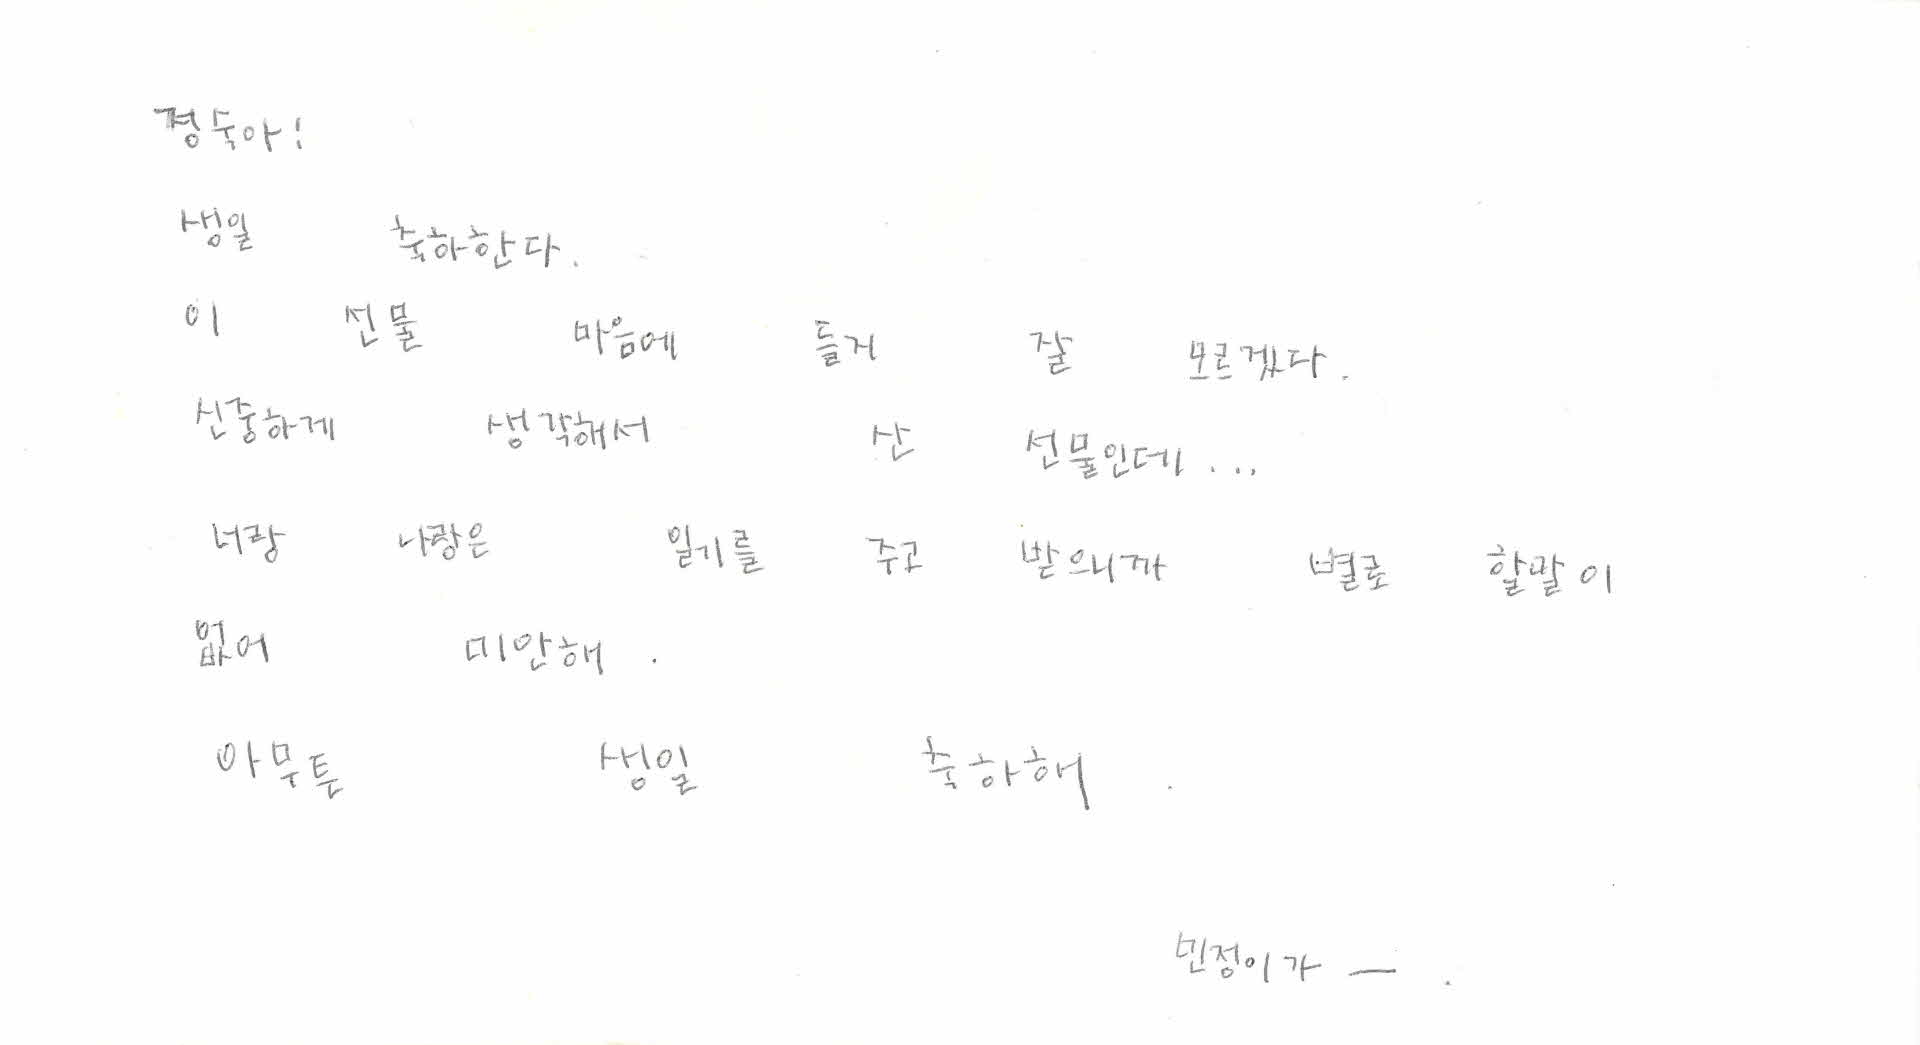 경숙아!
생일 축하한다.
이 선물 마음에 들지 잘 모르겠다.
신중하게 생각해서 산 선물인데...
너랑 나랑은 일기를 주고 받으니까 별로 할말이
없어 미안해.
아무튼 생일 축하해.
민정이가 —.